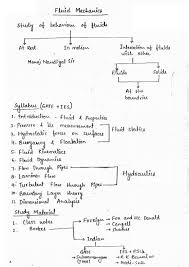 Fluid Mechanics
Study of behaviour of fluids
At Rest
In motion
Interaction of fluids
with other
Fluids
Solids
At the
boundaries
Syllabus (GATE + IES)
1. Introduction - Fluid & Properties
2. Pressure & its measurement
3. Hydrostatic forces on surfaces
Fluid statics
4. Buoyancy & Floatation
5. Fluid Kinematics
6. Fluid Dynamics
7. Flow through Pipes
8. Laminar Flow
Hydraulics
9. Turbulent flow through Pipes
10. Boundary Layer theory
11. Dimensional Analysis
Study Material
1. Class notes
2. Books
Foreign
Fox and Mc Donald
Cengel
Indian
GATE
IES + PSUs
R K Bansal